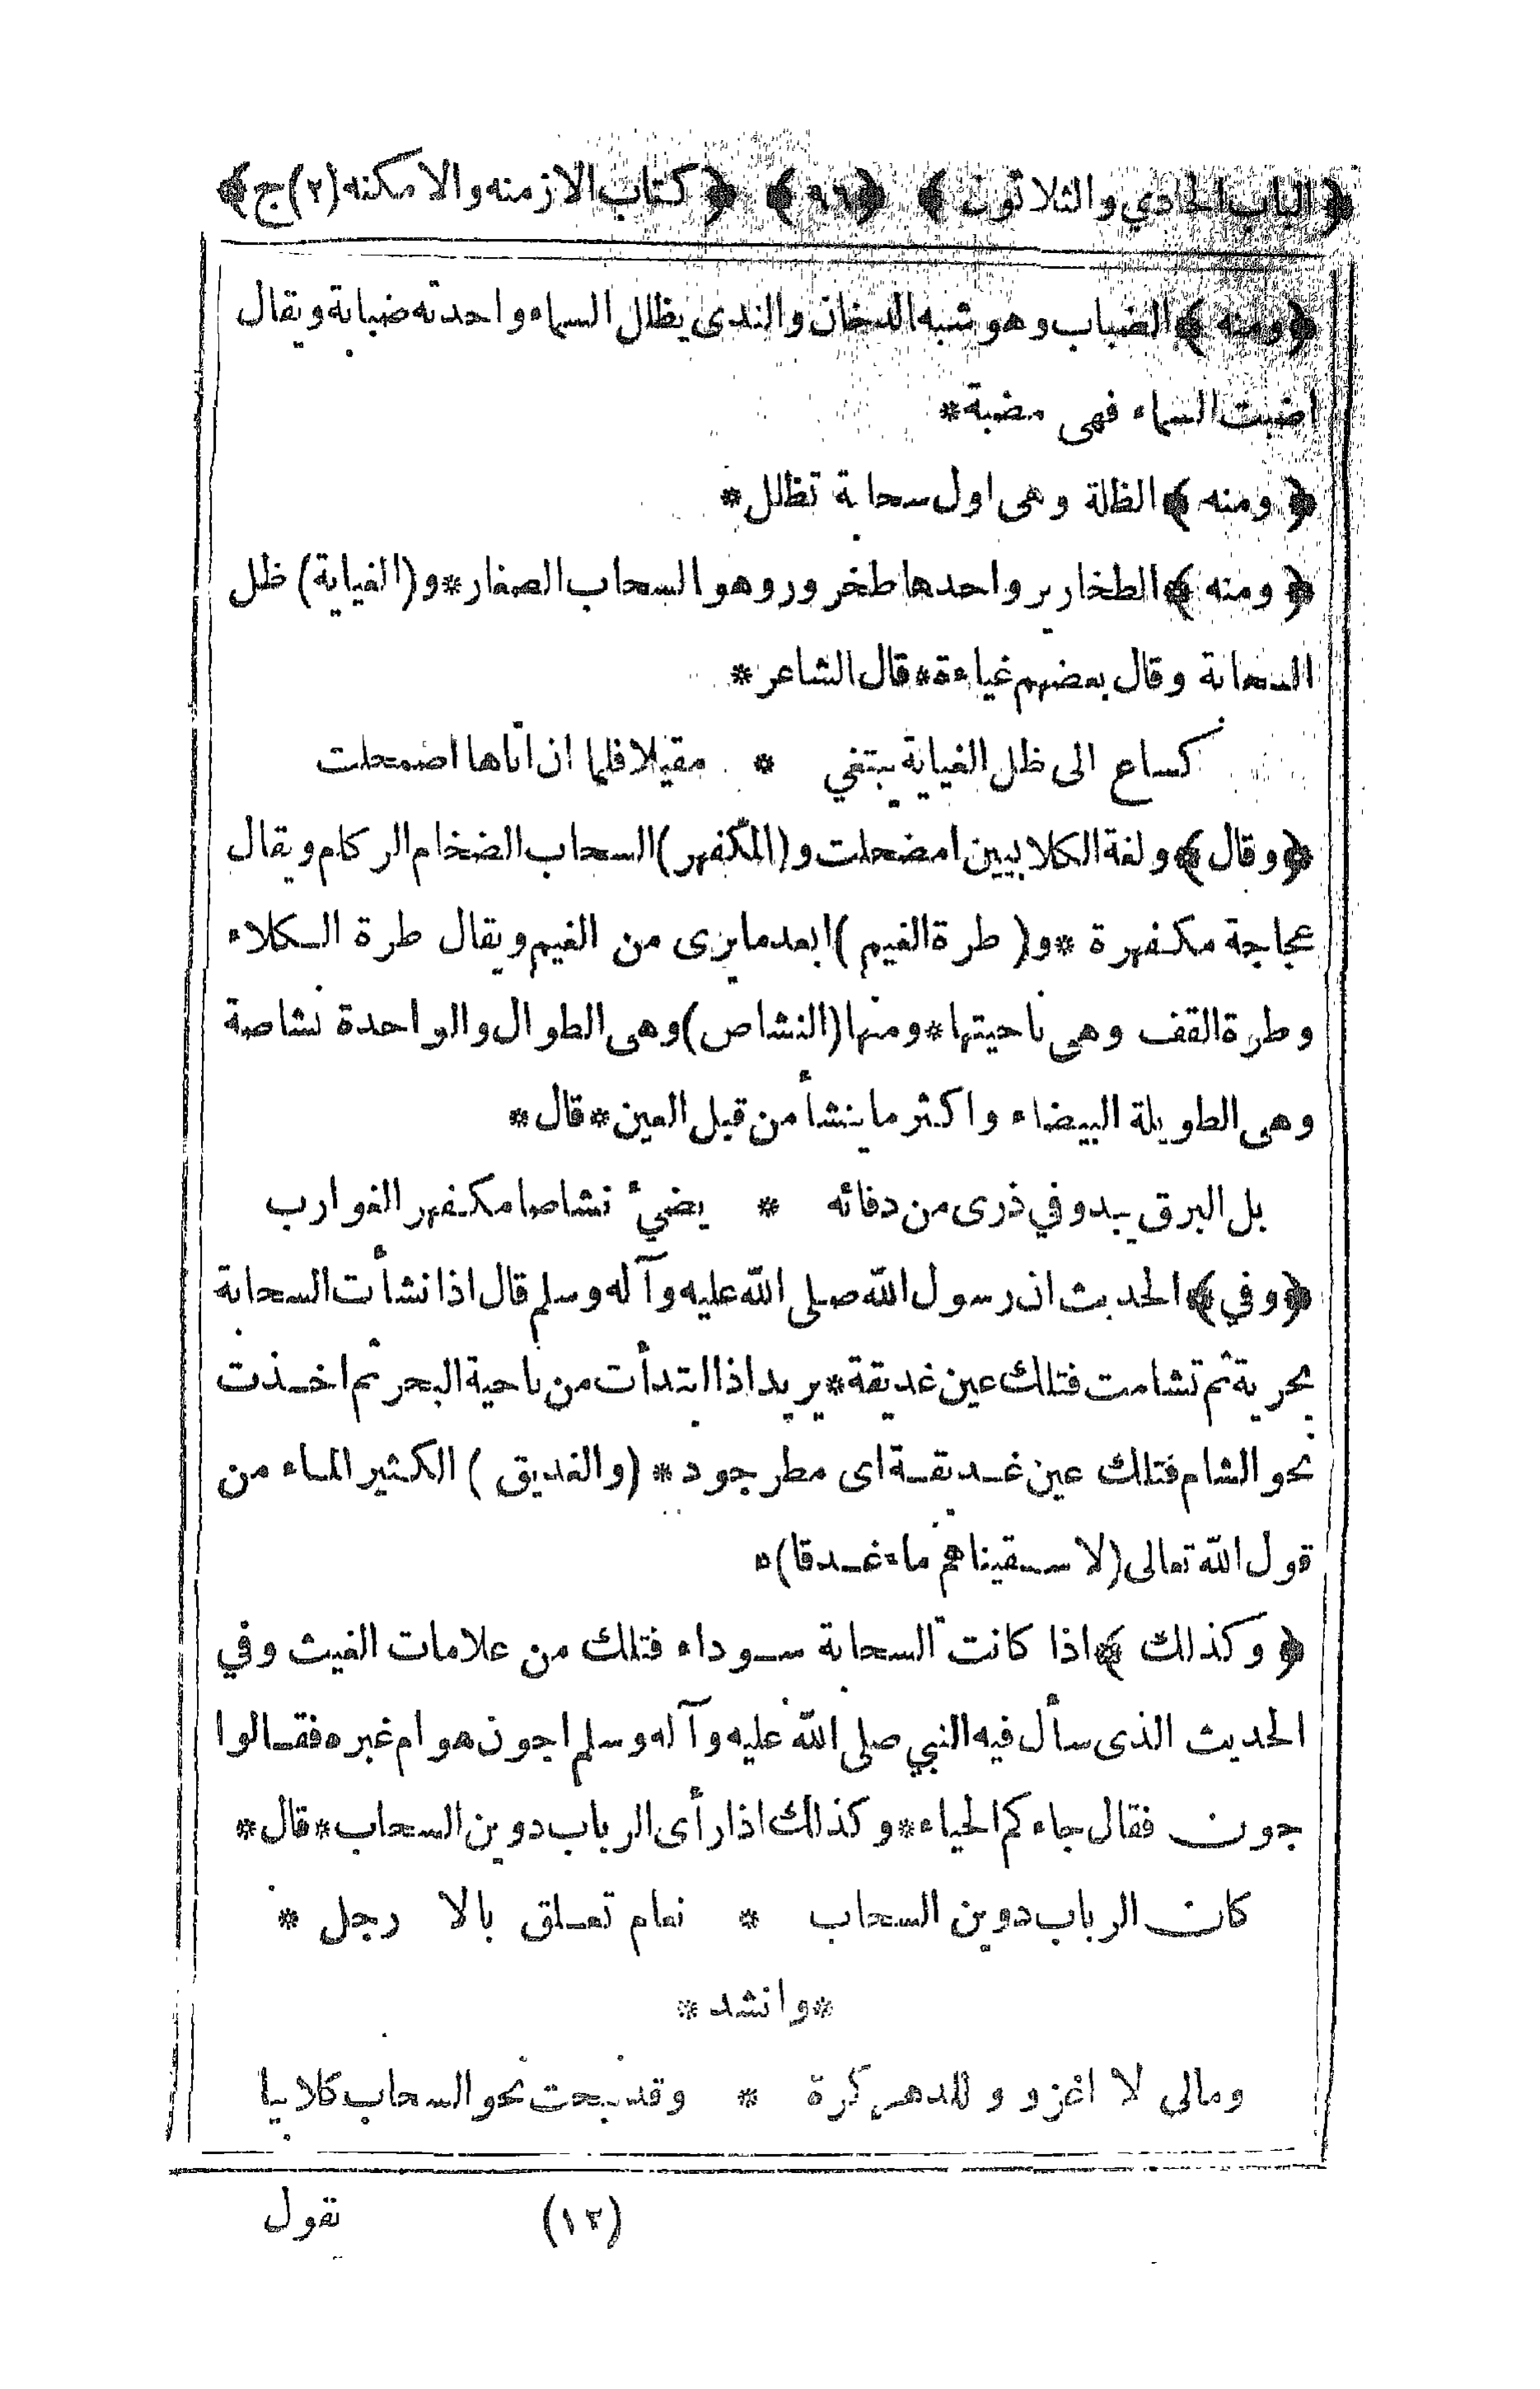 ﴿الباب الحادي والثلاثون﴾ ﴿٩٦﴾ ﴿كتاب الازمنه والامكنه (٢) ج﴾
﴿ومنه﴾ الضباب وهو شبه الدخان والندى يظلل السماء واحدته ضبابة ويقال
اضبت السماء فهى مضبة*
﴿ومنه﴾ الظلة وهى اول سحابة تظلل*
﴿ومنه﴾ الطخارير واحدها طخرور وهو السحاب الصغار* و(الغياية) ظل
السحابة وقال بعضهم غياءة* قال الشاعر*
كساع الى ظل الغياية يبتغي * مقيلا فلما ان اتاها اضمحلت
﴿وقال﴾ ولغة الكلابيين امضحلت و(المكفهر) السحاب الضخام الركام ويقال
عجاجة مكفهرة * و(طرة الغيم) ابعد ما يرى من الغيم ويقال طرة الكلاء
وطرة القف وهى ناحيتها* ومنها (النشاص) وهى الطوال والواحدة نشاصة
وهى الطويلة البيضاء واكثر ما ينشأ من قبل العين* قال*
بل البرق يبدو في ذرى من دفائه * يضيئ نشاصا مكفهر الغوارب
﴿وفي﴾ الحديث ان رسول الله صلى الله عليه وآله وسلم قال اذا نشأت السحابة
بحرية ثم تشامت فتلك عين غديقة* يريد اذا ابتدأت من ناحية البحر ثم اخذت
نحو الشام فتلك عين غديقة اى مطر جود* (والغديق) الكثير الماء من
قول الله تعالى (لا سقيناهم ماء غدقا)*
﴿وكذلك﴾ اذا كانت السحابة سوداء فتلك من علامات الغيث وفي
الحديث الذى سأل فيه النبي صلى الله عليه وآله وسلم اجون هو ام غبره فقالوا
جون فقال جاءكم الحياء* وكذلك اذا رأى الرباب دوين السحاب* قال*
كان الرباب دوين السحاب * نعام تعلق بالا رجل *
*وانشد*
ومالى لا اغزو وللدهر كرة * وقد نبحت نحو السحاب كلابيا
(١٢) تقول